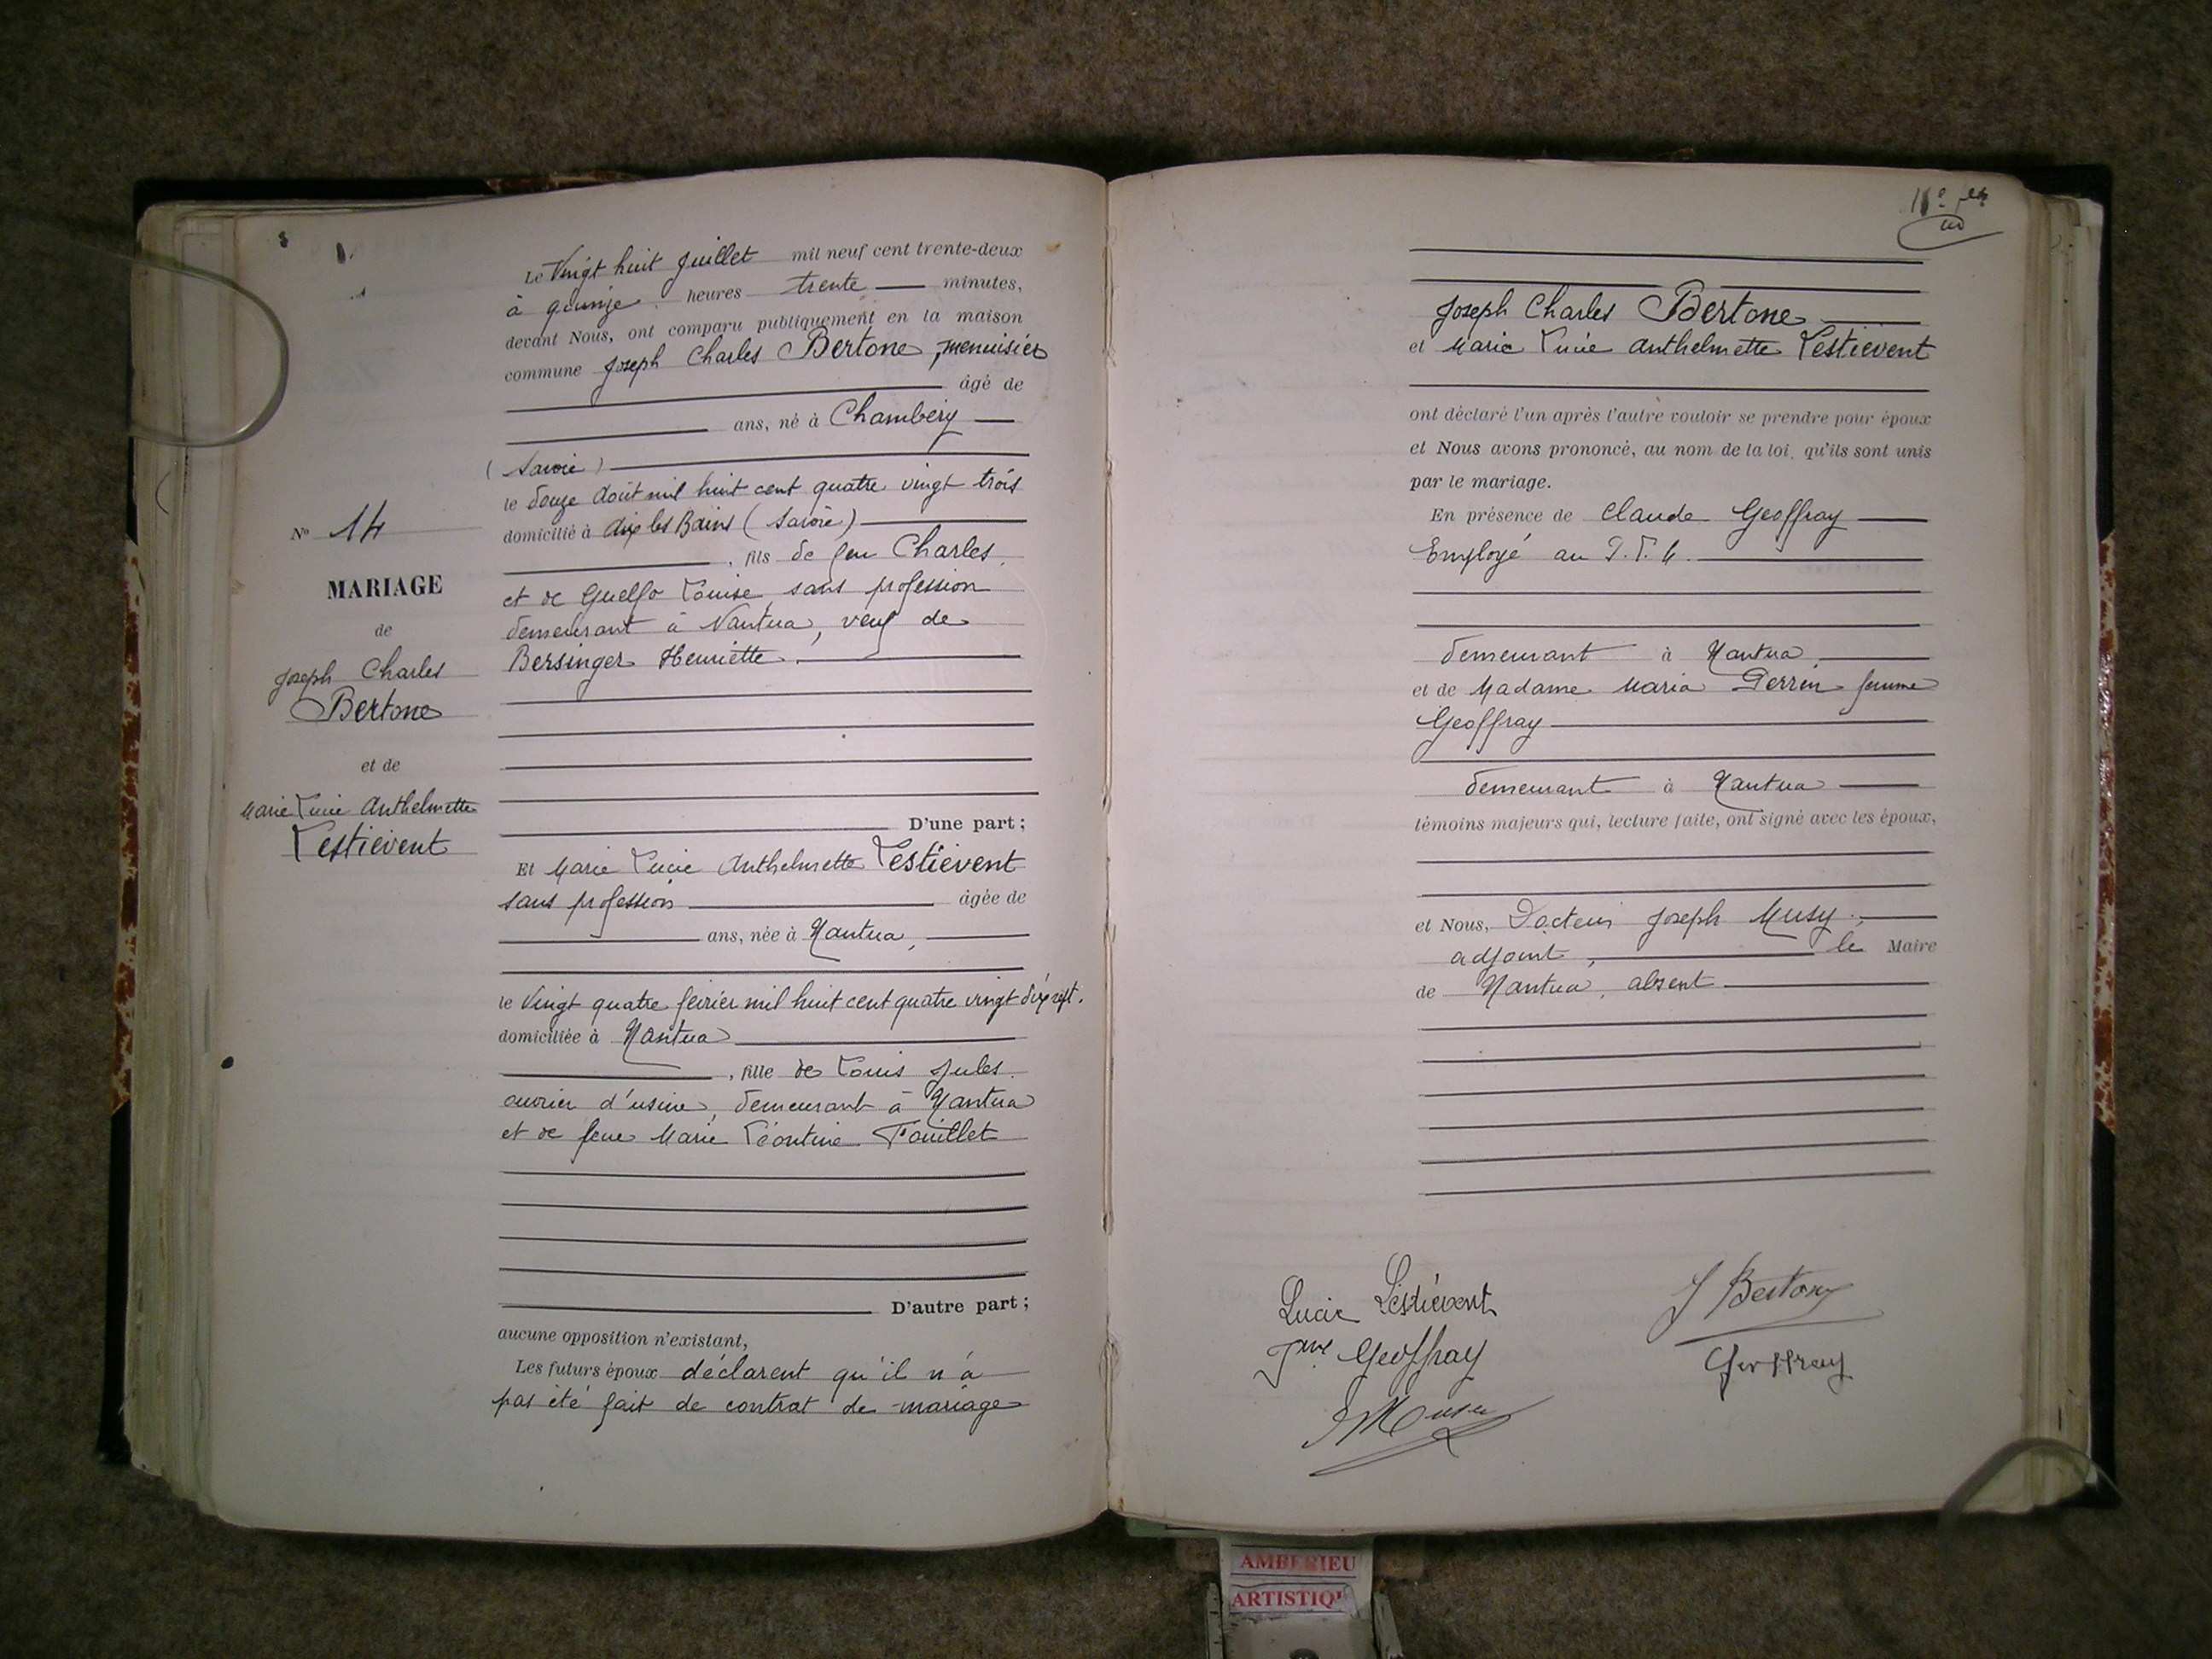 Le Vingt huit Juillet mil neuf cent trente-deux
à quinze heures trente minutes,
devant Nous, ont comparu publiquement en la maison
commune Joseph Charles Bertone, menuisier
âgé de
ans, né à Chambéry
(Savoie)
le douze Août mil huit cent quatre vingt trois
domicilié à Aix les Bains (Savoie)
, fils de feu Charles,
et de Guelfo Louise sans profession
demeurant à Nantua, veuf de
Bersinger Henriette.
D'une part;
Et Marie Lucie Anthelmette Lestievent
sans profession âgée de
ans, née à Nantua,
le Vingt quatre février mil huit cent quatre vingt dix sept.
domiciliée à Nantua
, fille de Louis Jules
ouvrier d'usine, demeurant à Nantua
et de feue Marie Léontine Fouillet
D'autre part;
aucune opposition n'existant,
Les futurs époux déclarent qu'il n'a
pas été fait de contrat de mariage
N° 14
MARIAGE
de
Joseph Charles
Bertone
et de
Marie Lucie Anthelmette
Lestievent
Joseph Charles Bertone
et Marie Lucie Anthelmette Lestievent
ont déclaré l'un après l'autre vouloir se prendre pour époux
et Nous avons prononcé, au nom de la loi, qu'ils sont unis
par le mariage.
En présence de Claude Geoffray
Employé au P.T.T.
demeurant à Nantua,
et de Madame Maria Perrin femme
Geoffray
demeurant à Nantua
témoins majeurs qui, lecture faite, ont signé avec les époux,
et Nous, Docteur Joseph Musy,
adjoint, le Maire
de Nantua, absent
Lucie Lestievent
J Bertone
Geoffray
Geoffray
JMusy
AMBERIEU
ARTISTIQU